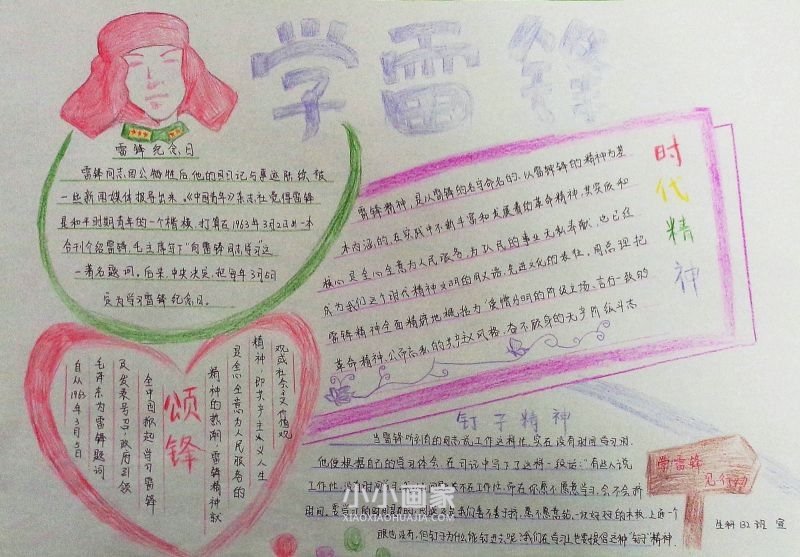 学雷锋
雷锋纪念日
雷锋同志因公牺牲后他的日记与事迹陆续被
一些新闻媒体报导出来。《中国青年》杂志社觉得雷锋
是和平时期青年的一个楷模,打算在1963年3月2日的一本
合刊介绍雷锋,毛主席写了"向雷锋同志学习"这
一著名题词。后来中央决定,把每年3月5日
定为学习雷锋纪念日。
时代精神
雷锋精神,是以雷锋的名字命名的、以雷锋的精神为基
本内涵的、在实践中不断丰富和发展着的革命精神,其实质和
核心是全心全意为人民服务,为了人民的事业无私奉献,也已经
成为我们这个时代精神文明的同义语、先进文化的表征。周总理把
雷锋精神全面精辟地概括为"爱憎分明的阶级立场、言行一致的
革命精神、公而忘私的共产主义风格、奋不顾身的无产阶级斗志
颂锋
自从1963年3月5日
毛泽东为雷锋题词
及发表号召政府引领
全中国掀起学习雷锋
精神的热潮,雷锋精神就
是全心全意为人民服务的
精神,即共产主义人生
观或社会主义价值观
钉子精神
当雷锋听到有的同志说工作这样忙,实在没有时间学习时,
他便根据自己的学习体会,在日记中写了这样一段话:"有些人说
工作忙、没有时间学习,问题不在工作忙,而在你愿不愿意学习,会不会挤
时间。要学习的时间是有的,问题是我们善不善于挤,愿不愿意钻。一块好好的木板,上面一个
眼也没有,但钉子为什么能钉进去呢?我们在学习上也要提倡这种"钉子"精神。
学雷锋
见行动
生科132班 宣
小小画家
XIAOXIAOHUAJIA.COM